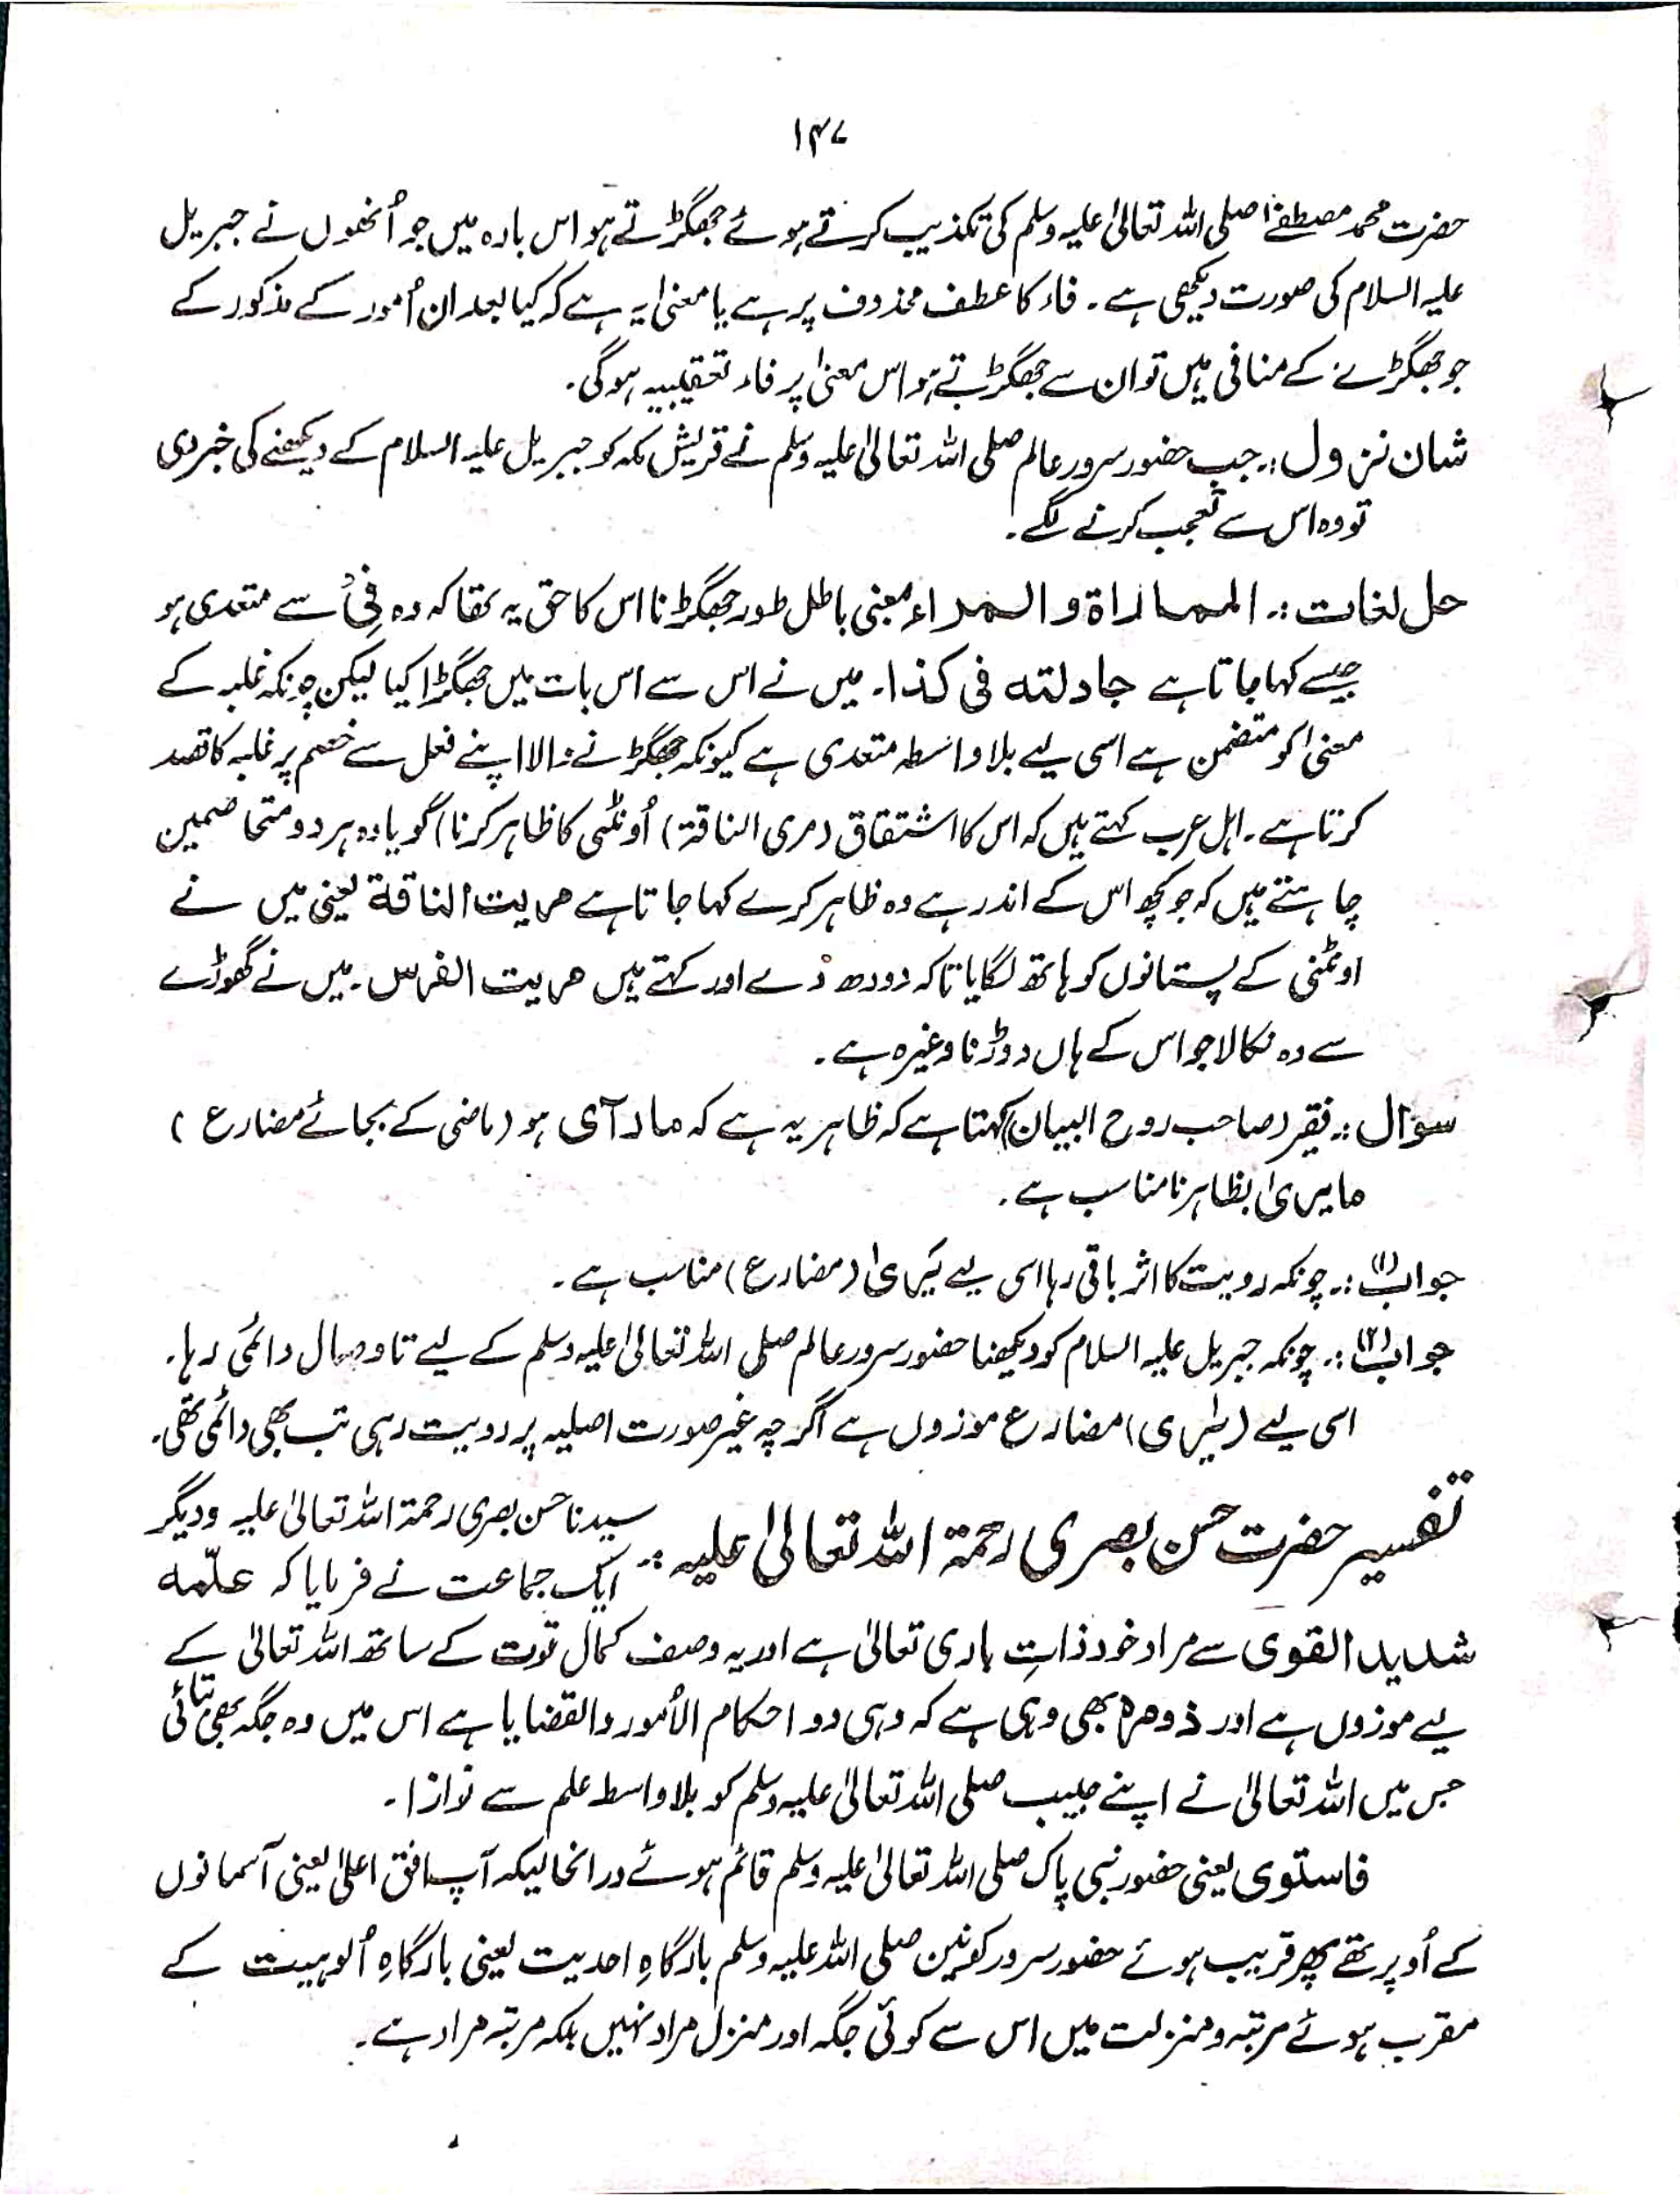 ۱۴۷
حضرت محمد مصطفےٰ صلی اللہ تعالیٰ علیہ وسلم کی تکذیب کرتے ہوئے جھگڑتے ہو اس بارہ میں جو اُنھوں نے جبریل
علیہ السلام کی صورت دیکھی ہے ۔ فاء کا عطف محذوف پر ہے یا معنیٰ یہ ہے کہ کیا بعد ان اُمور کے مذکور کے
جو جھگڑے کے منافی ہیں تو ان سے جھگڑتے ہو اس معنیٰ پر فاء تعقیبیہ ہوگی ۔
شان نزول :۔ جب حضور سرور عالم صلی اللہ تعالیٰ علیہ وسلم نے قریش مکہ کو جبریل علیہ السلام کے دیکھنے کی خبر دی
تو وہ اس سے تعجب کرنے لگے ۔
حل لغات :۔ المماراة والمراء بمعنی باطل طور جھگڑنا اس کا حق یہ تھا کہ وہ فِیْ سے متعدی ہو
جیسے کہا جاتا ہے جادلته فی کذا ۔ میں نے اس سے اس بات میں جھگڑا کیا لیکن چونکہ غلبہ کے
معنیٰ کو متضمن ہے اسی لیے بلا واسطہ متعدی ہے کیونکہ جھگڑنے والا اپنے فعل سے خصم پر غلبہ کا قصد
کرتا ہے ۔ اہل عرب کہتے ہیں کہ اس کا اشتقاق (مری الناقۃ) اُونٹنی کا ظاہر کرنا) گویا وہ ہر دو متخاصمین
چاہتے ہیں کہ جو کچھ اس کے اندر ہے وہ ظاہر کرے کہا جاتا ہے مریت الناقة یعنی میں نے
اونٹنی کے پستانوں کو ہاتھ لگایا تاکہ دودھ دے اور کہتے ہیں مریت الفرس ۔ میں نے گھوڑے
سے وہ نکالا جو اس کے ہاں دوڑنا وغیرہ ہے ۔
سوال :۔ فقیر (صاحب روح البیان) کہتا ہے کہ ظاہر یہ ہے کہ مارآی ہو (ماضی کے بجائے مضارع )
مایریٰ بظاہر نامناسب ہے ۔
جواب (۱) :۔ چونکہ رویت کا اثر باقی رہا اسی لیے یَریٰ (مضارع) مناسب ہے ۔
جواب (۲) :۔ چونکہ جبریل علیہ السلام کو دیکھنا حضور سرور عالم صلی اللہ تعالیٰ علیہ وسلم کے لیے تا وصال دائمی رہا ۔
اسی لیے (یریٰ) مضارع موزوں ہے اگرچہ غیر صورت اصلیہ پر رویت رہی تب بھی دائمی تھی ۔
تفسیر حضرت حسن بصری رحمۃ اللہ تعالیٰ علیہ :۔ سیدنا حسن بصری رحمۃ اللہ تعالیٰ علیہ و دیگر
ایک جماعت نے فرمایا کہ علّمه
شدید القوی سے مراد خود ذاتِ باری تعالیٰ ہے اور یہ وصف کمال قوت کے ساتھ اللہ تعالیٰ کے
لیے موزوں ہے اور ذومرہ بھی وہی ہے کہ وہی دو احکام الاُمور والقضایا ہے اس میں وہ جگہ بھی بتائی
جس میں اللہ تعالیٰ نے اپنے حبیب صلی اللہ تعالیٰ علیہ وسلم کو بلا واسط علم سے نوازا ۔
فاستوی یعنی حضور نبی پاک صلی اللہ تعالیٰ علیہ وسلم قائم ہوئے درانحالیکہ آپ افق اعلیٰ یعنی آسمانوں
کے اُوپر تھے پھر قریب ہوئے حضور سرور کونین صلی اللہ علیہ وسلم بارگاہِ احدیت یعنی بارگاہِ اُلوہیت کے
مقرب ہوئے مرتبہ و منزلت میں اس سے کوئی جگہ اور منزل مراد نہیں بلکہ مرتبہ مراد ہے ۔